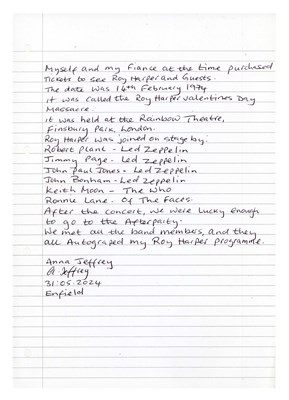 Myself and my Fiance at the time purchased
tickets to see Roy Harper and Guests.
The date was 14th February 1974
it was called the Roy Harper Valentines Day
Massacre.
it was held at the Rainbow Theatre,
Finsbury Park, London.
Roy Harper was joined on stage by:
Robert Plant - Led Zeppelin
Jimmy Page - Led Zeppelin
John Paul Jones - Led Zeppelin
John Bonham - Led Zeppelin
Keith Moon - The Who
Ronnie Lane - Of The Faces.
After the concert, we were lucky enough
to go to the Afterparty.
We met all the band members, and they
all Autograped my Roy Harper programme.
Anna Jeffrey
A Jeffrey
31.05.2024
Enfield